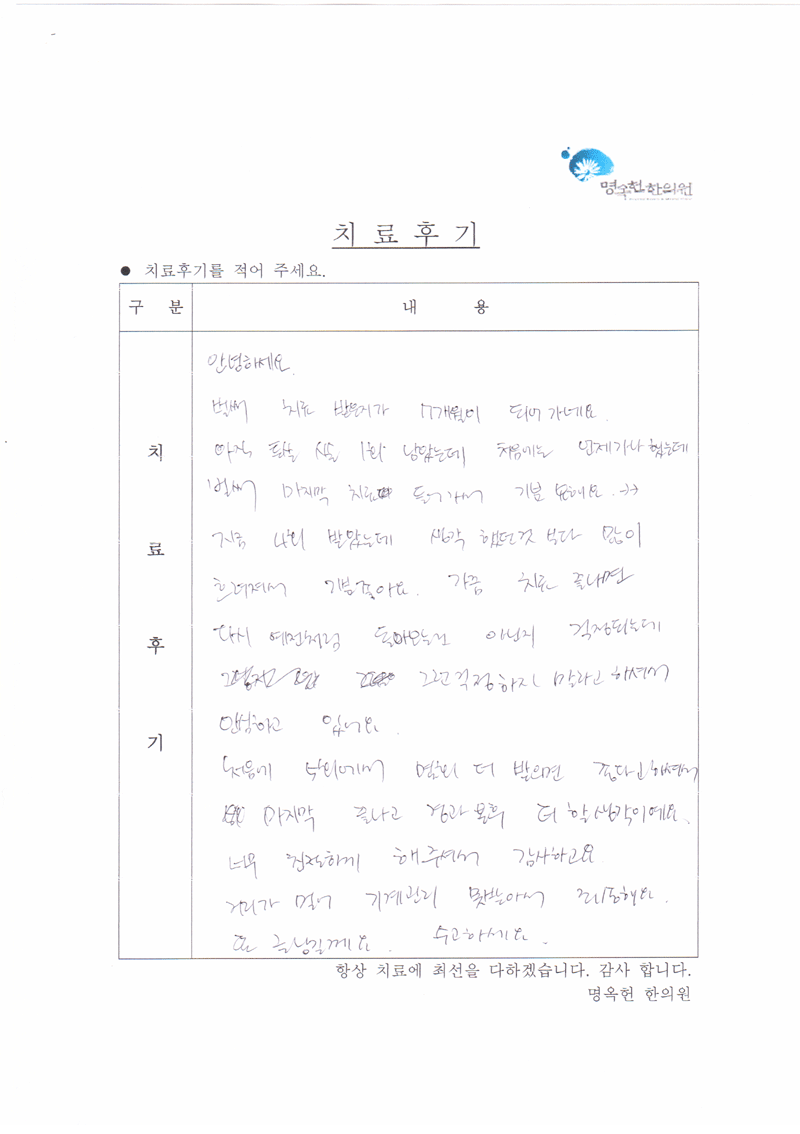 명옥헌한의원
치 료 후 기
● 치료후기를 적어 주세요.
구 분
내 용
치
료
후
기
안녕하세요.
벌써 치료 받은지가 7개월이 되어가네요.
아직 시술 1회 남았는데 처음에는 언제가나 했는데
벌써 마지막 치료 들어가서 기분 묘해요.
지금 4회 받았는데 생각 했던것 보다 많이
흐려져서 기분좋아요. 가끔 치료 끝내면
다시 예전처럼 돌아오는건 아닌지 걱정되는데
그런걱정하지 말라고 하셔서
안심하고 있니요.
처음에 5회에서 몇회 더 받으면 좋다고하셔서
마지막 끝나고 경과 본후 더 할생각이에요.
너무 친절하게 해주셔서 감사하고요
거리가 멀어 기계관리 못받아서 죄송해요.
또 글남길께요. 수고하세요.
항상 치료에 최선을 다하겠습니다. 감사 합니다.
명옥헌 한의원